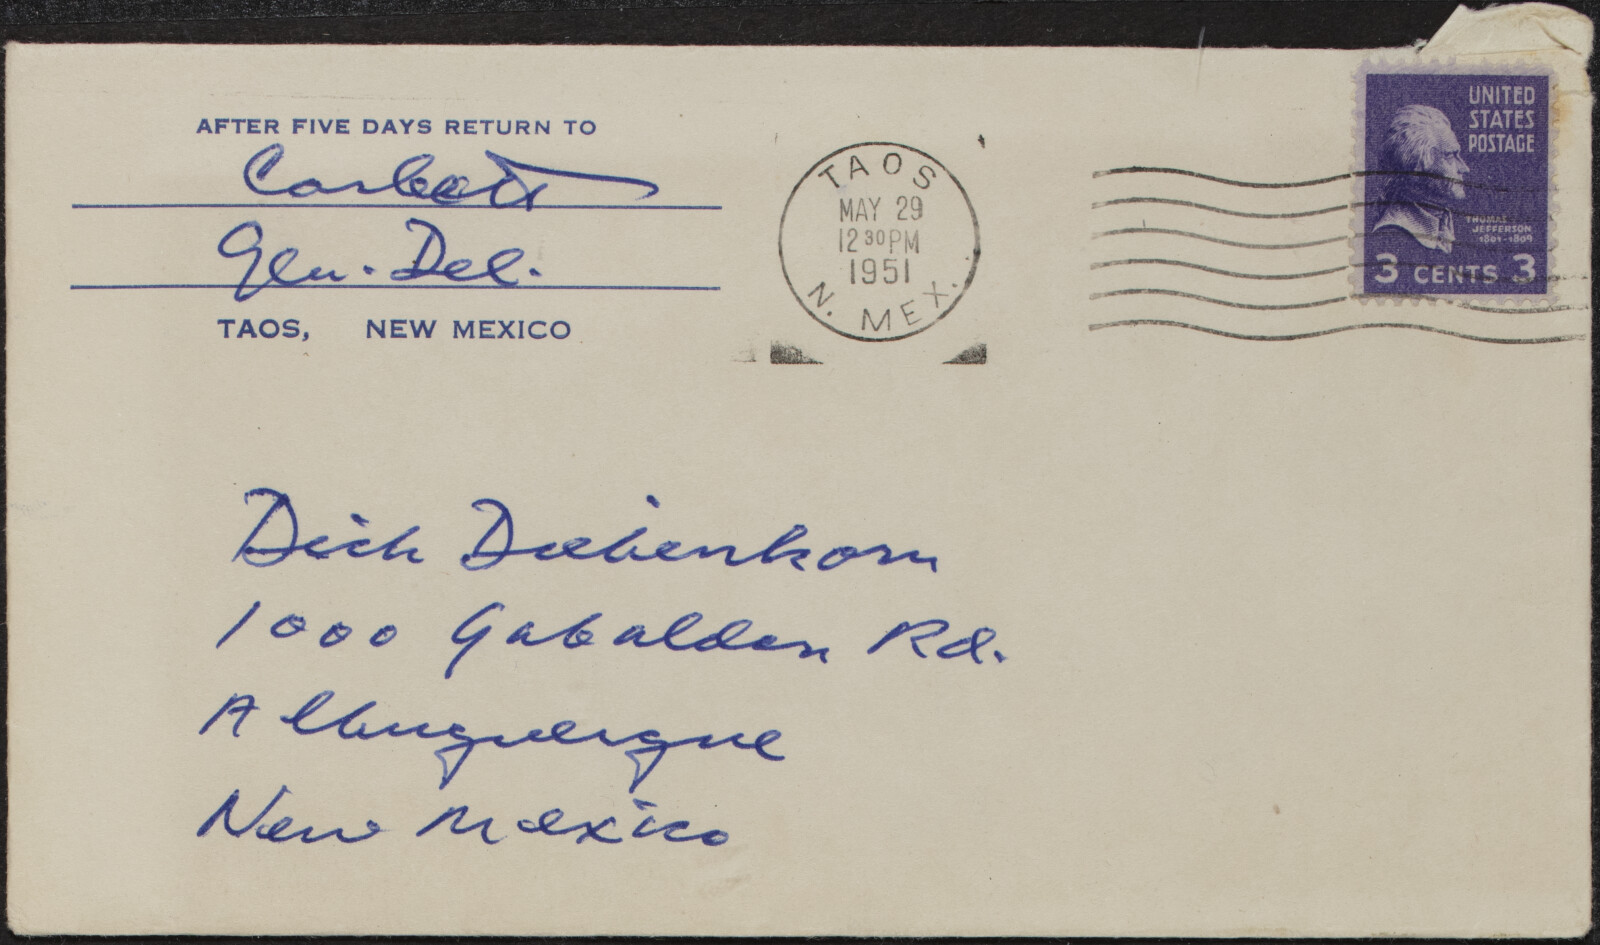 AFTER FIVE DAYS RETURN TO
Corbett
Gen. Del.
TAOS, NEW MEXICO
TAOS
MAY 29
12 30 PM
1951
N. MEX.
UNITED
STATES
POSTAGE
THOMAS
JEFFERSON
1801-1809
3 CENTS 3
Dick Diebenkorn
1000 Gabaldon Rd.
Albuquerque
New Mexico